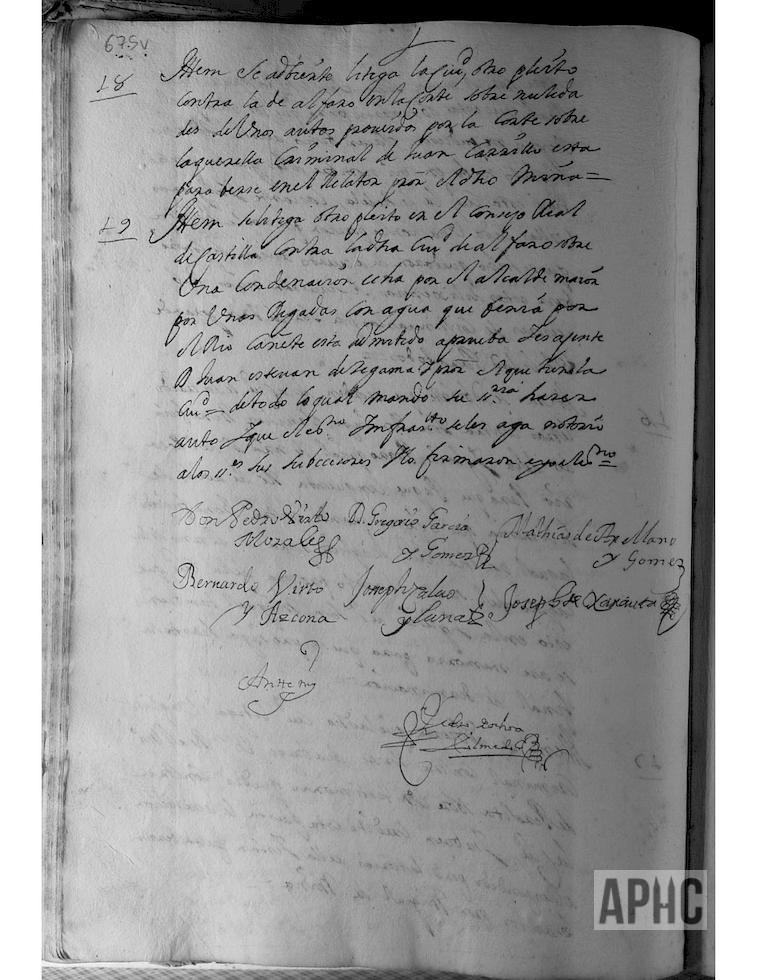 675v
18 Ittem se adbierte litega la ciud otro pleito
contra la de alfaro en la Corte sobre nulida
des de Unos autos proueidos por la Corte sobre
la querella Criminal de Juan Carrillo esta
para berse en el Relator por el dho
19 Ittem se litega otro pleito en el Consejo Real
de Castilla Contra la dha Ciud de alfaro sobre
Una Condenacion echa por el alcalde maior
por Unas Regadas con agua que benia por
el Rio Cañete esta admitido aprueba
D Juan esteuan de Legama por el que
Ciud de todo lo qual mando su hazer
auto que el esno Infrasto se les aga notorio
a los ss.es sus subcesores firmaron
Don Pedro Virto
Morales
D. Gregorio Garcia
y Gomez
Mathias de Arellano
y Gomez
Bernardo Virto
y Azcona
Joseph
y Luna
Joseph de
Ante mi
Pedro ochoa